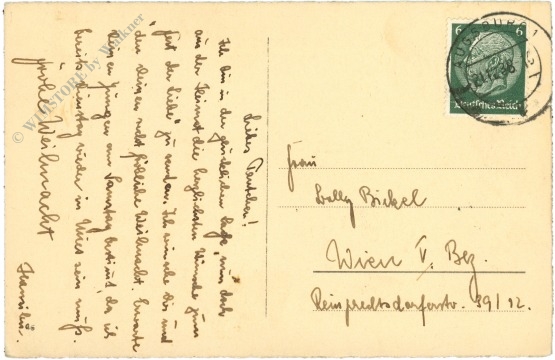 Liebes Tantchen!
Ich bin in der glücklichen Lage, nun doch
aus der Heimat die herzlichsten Wünsche zum
"Fest der Liebe" zu senden. Ich wünsche Dir und
den Deinen recht fröhliche Weihnacht. Erwarte
am Samstag bestimmt, da ich
bereits Dienstag wieder in sein muß.
Fröhl. Weihnacht
© WILLSTORE by Walkner
AUGSBURG 1
6 6
Deutsches Reich
Frau
Bickel
Wien V. Bez.
Reinprechtsdorferstr. 39/12.